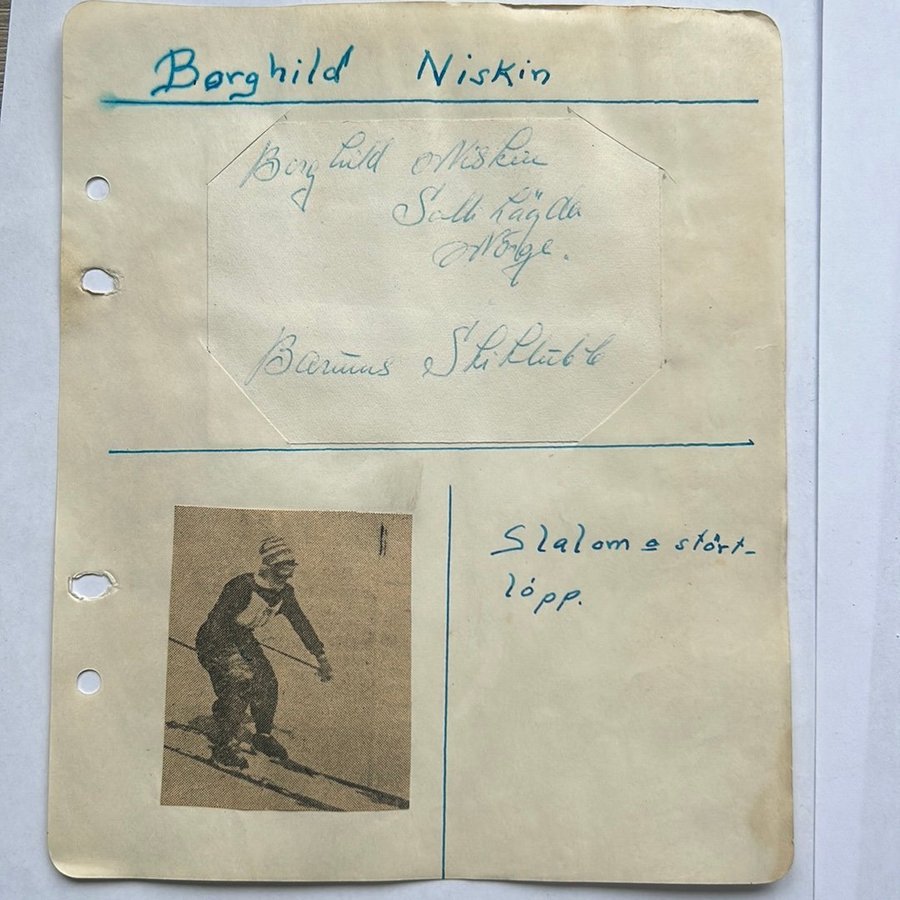 Borghild Niskin
Borghild Niskin
Norge.
Bærums Skiklubb
Slalom o stört-
löpp.